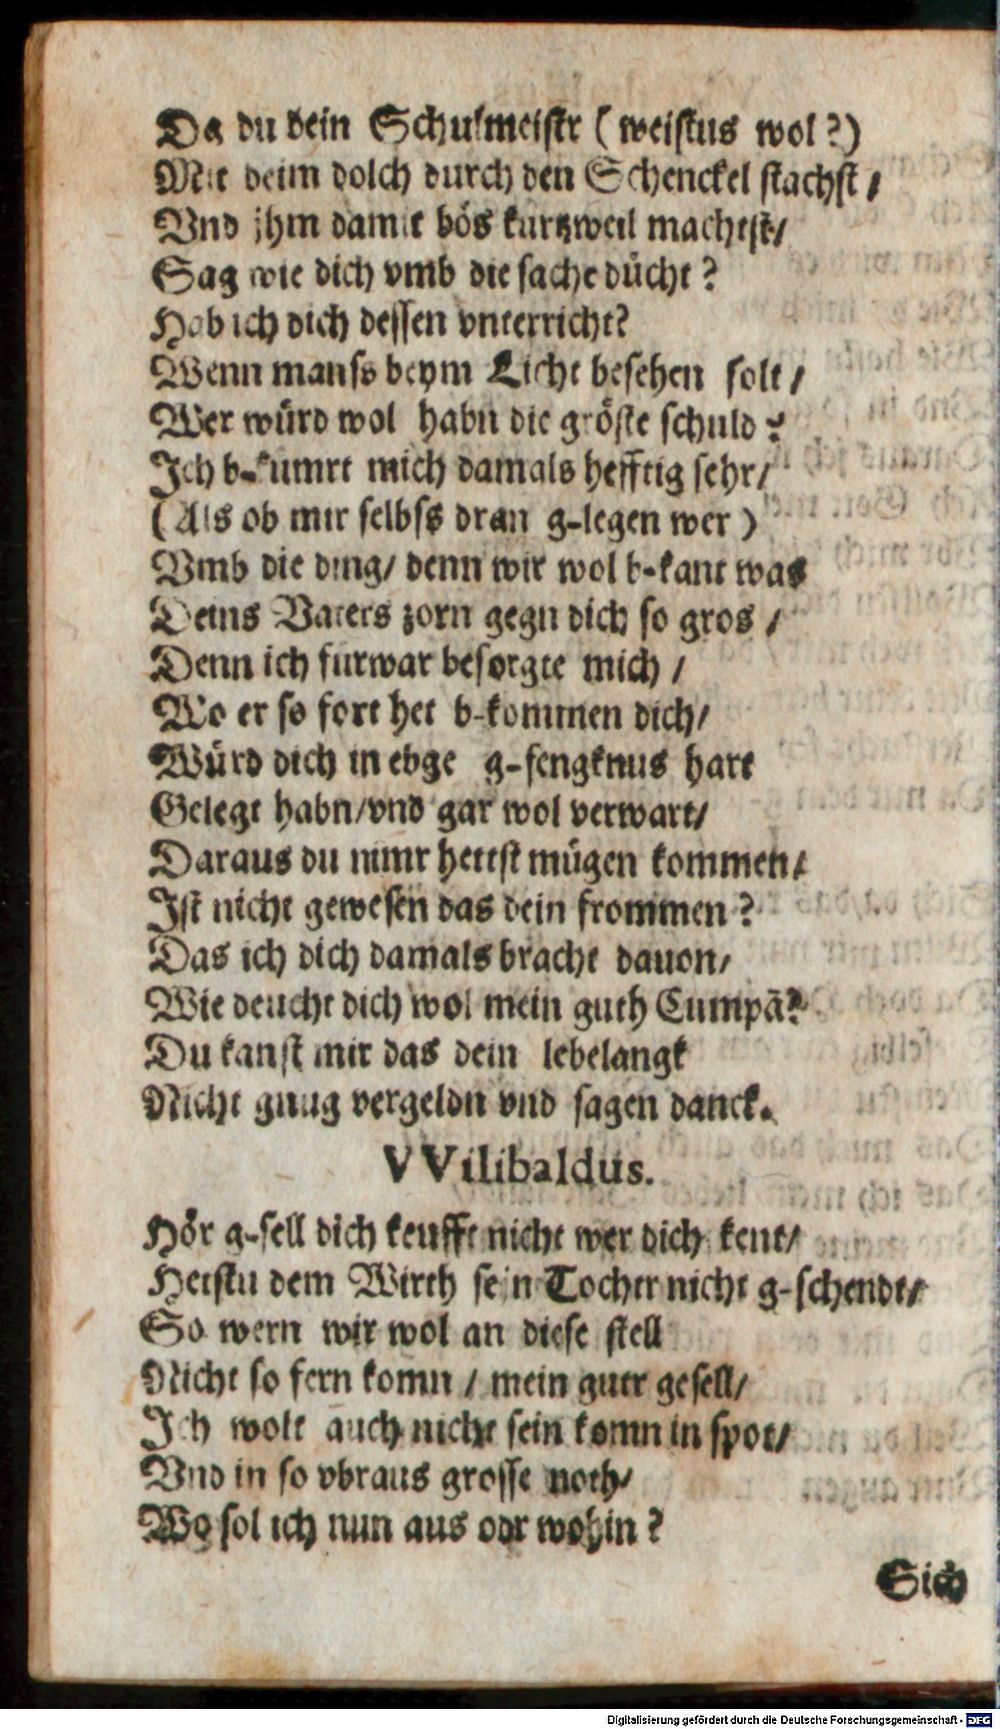 Da du dein Schulmeistr (weistus wol?)
Mit deim dolch durch den Schenckel stachst/
Vnd jhm damit bös kurtzweil machtst/
Sag wie dich vmb die sache dücht?
Hab ich dich dessen vnterricht?
Wenn manss beym Licht besehen solt/
Wer würd wol habn die gröste schuld?
Ich b-kümrt mich damals hefftig sehr/
(Als ob mir selbss dran g-legen wer)
Vmb die ding/ denn wir wol b-kant was
Deins Vaters zorn gegn dich so gros/
Denn ich fürwar besorgte mich/
Wo er so fort het b-kommen dich/
Würd dich in ebge g-fengknus hart
Gelegt habn/vnd gar wol verwart/
Daraus du nimr hettst mügen kommen/
Ist nicht gewesen das dein frommen?
Das ich dich damals bracht dauon/
Wie deucht dich wol mein guth Cumpā?
Du kanst mir das dein lebelangk
Nicht gnug vergeldn vnd sagen danck.
VVilibaldus.
Hör g-sell dich keufft nicht wer dich kent/
Hetstu dem Wirth sein Tochtr nicht g-schendt/
So wern wir wol an diese stell
Nicht so fern komn/ mein gutr gesell/
Ich wolt auch nicht sein komn in spot/
Vnd in so vbraus grosse noth/
Wo sol ich nun aus odr wohin?
Sich
Digitalisierung gefördert durch die Deutsche Forschungsgemeinschaft - DFG